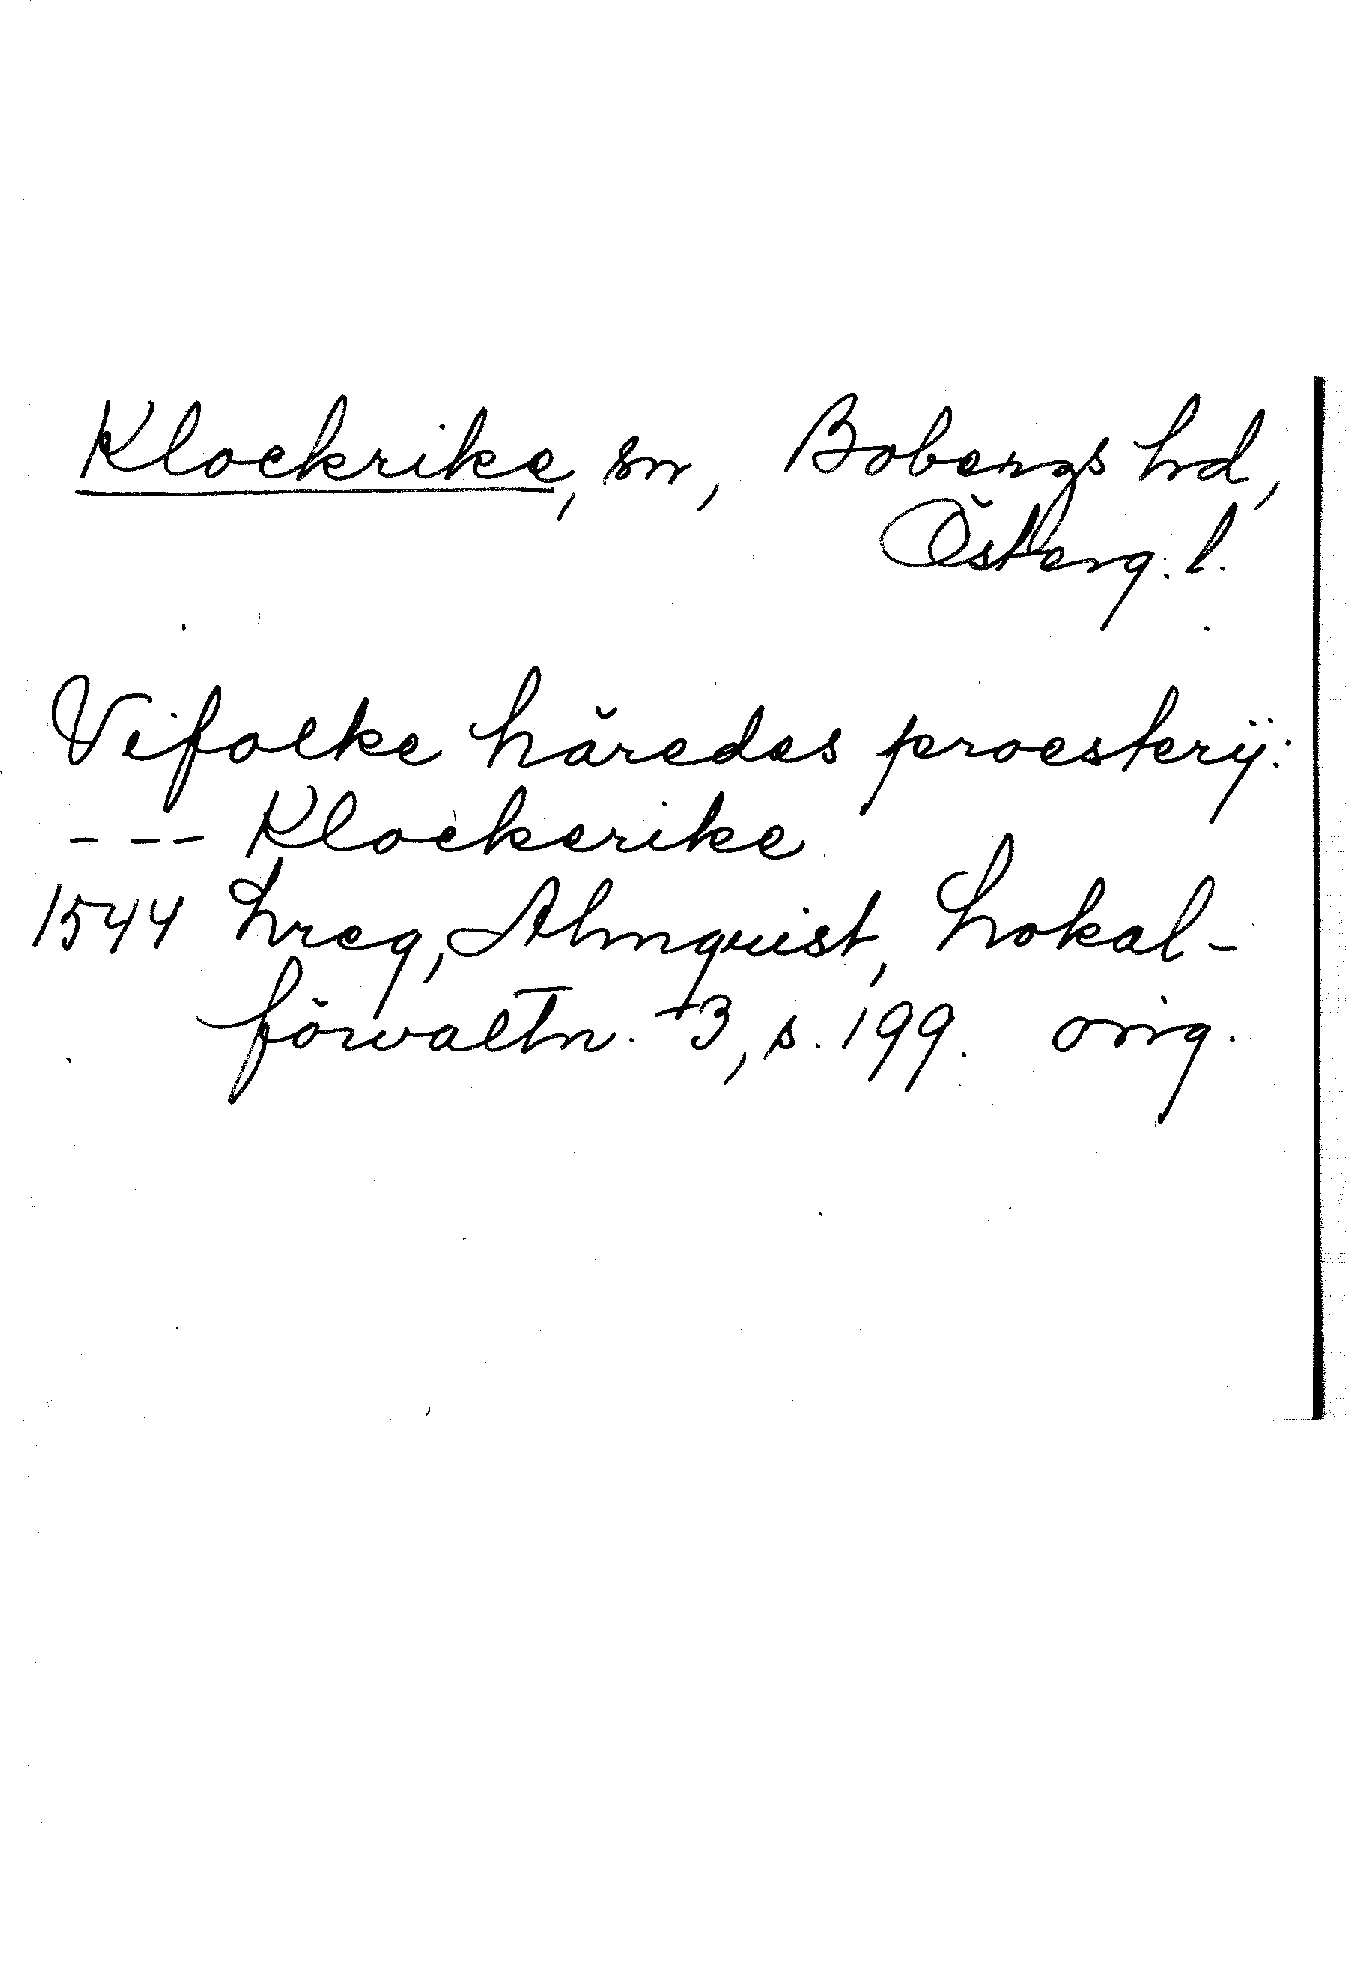 Klockrike, sn, Bobergs hd,
Österg. l.
Vifolke häredes proesterÿ:
--- Klockerike
1544 hreg, Almquist, Lokal-
förvaltn. 3, s. 199. orig.